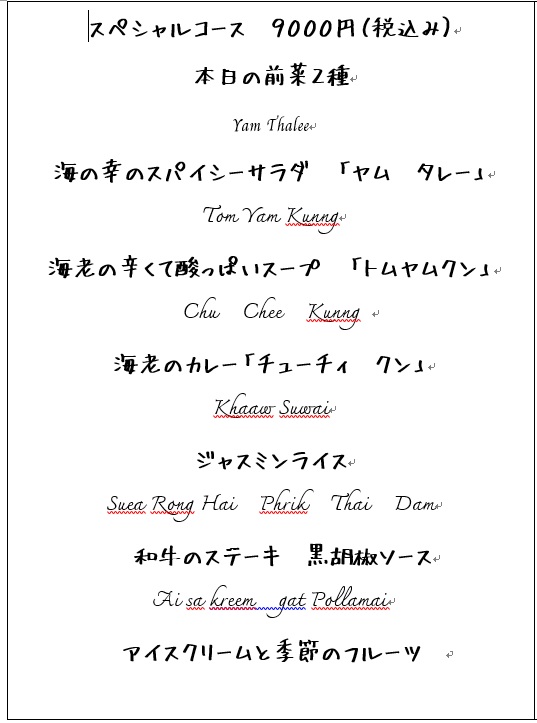 スペシャルコース　9000円(税込み)
本日の前菜2種
Yam Thalee
海の幸のスパイシーサラダ　「ヤム　タレー」
Tom Yam Kunng
海老の辛くて酸っぱいスープ　「トムヤムクン」
Chu　Chee　Kunng
海老のカレー「チューチィ　クン」
Khaaw Suwai
ジャスミンライス
Suea Rong Hai　Phrik　Thai　Dam
和牛のステーキ　黒胡椒ソース
Ai sa kreem　gat Pollamai
アイスクリームと季節のフルーツ